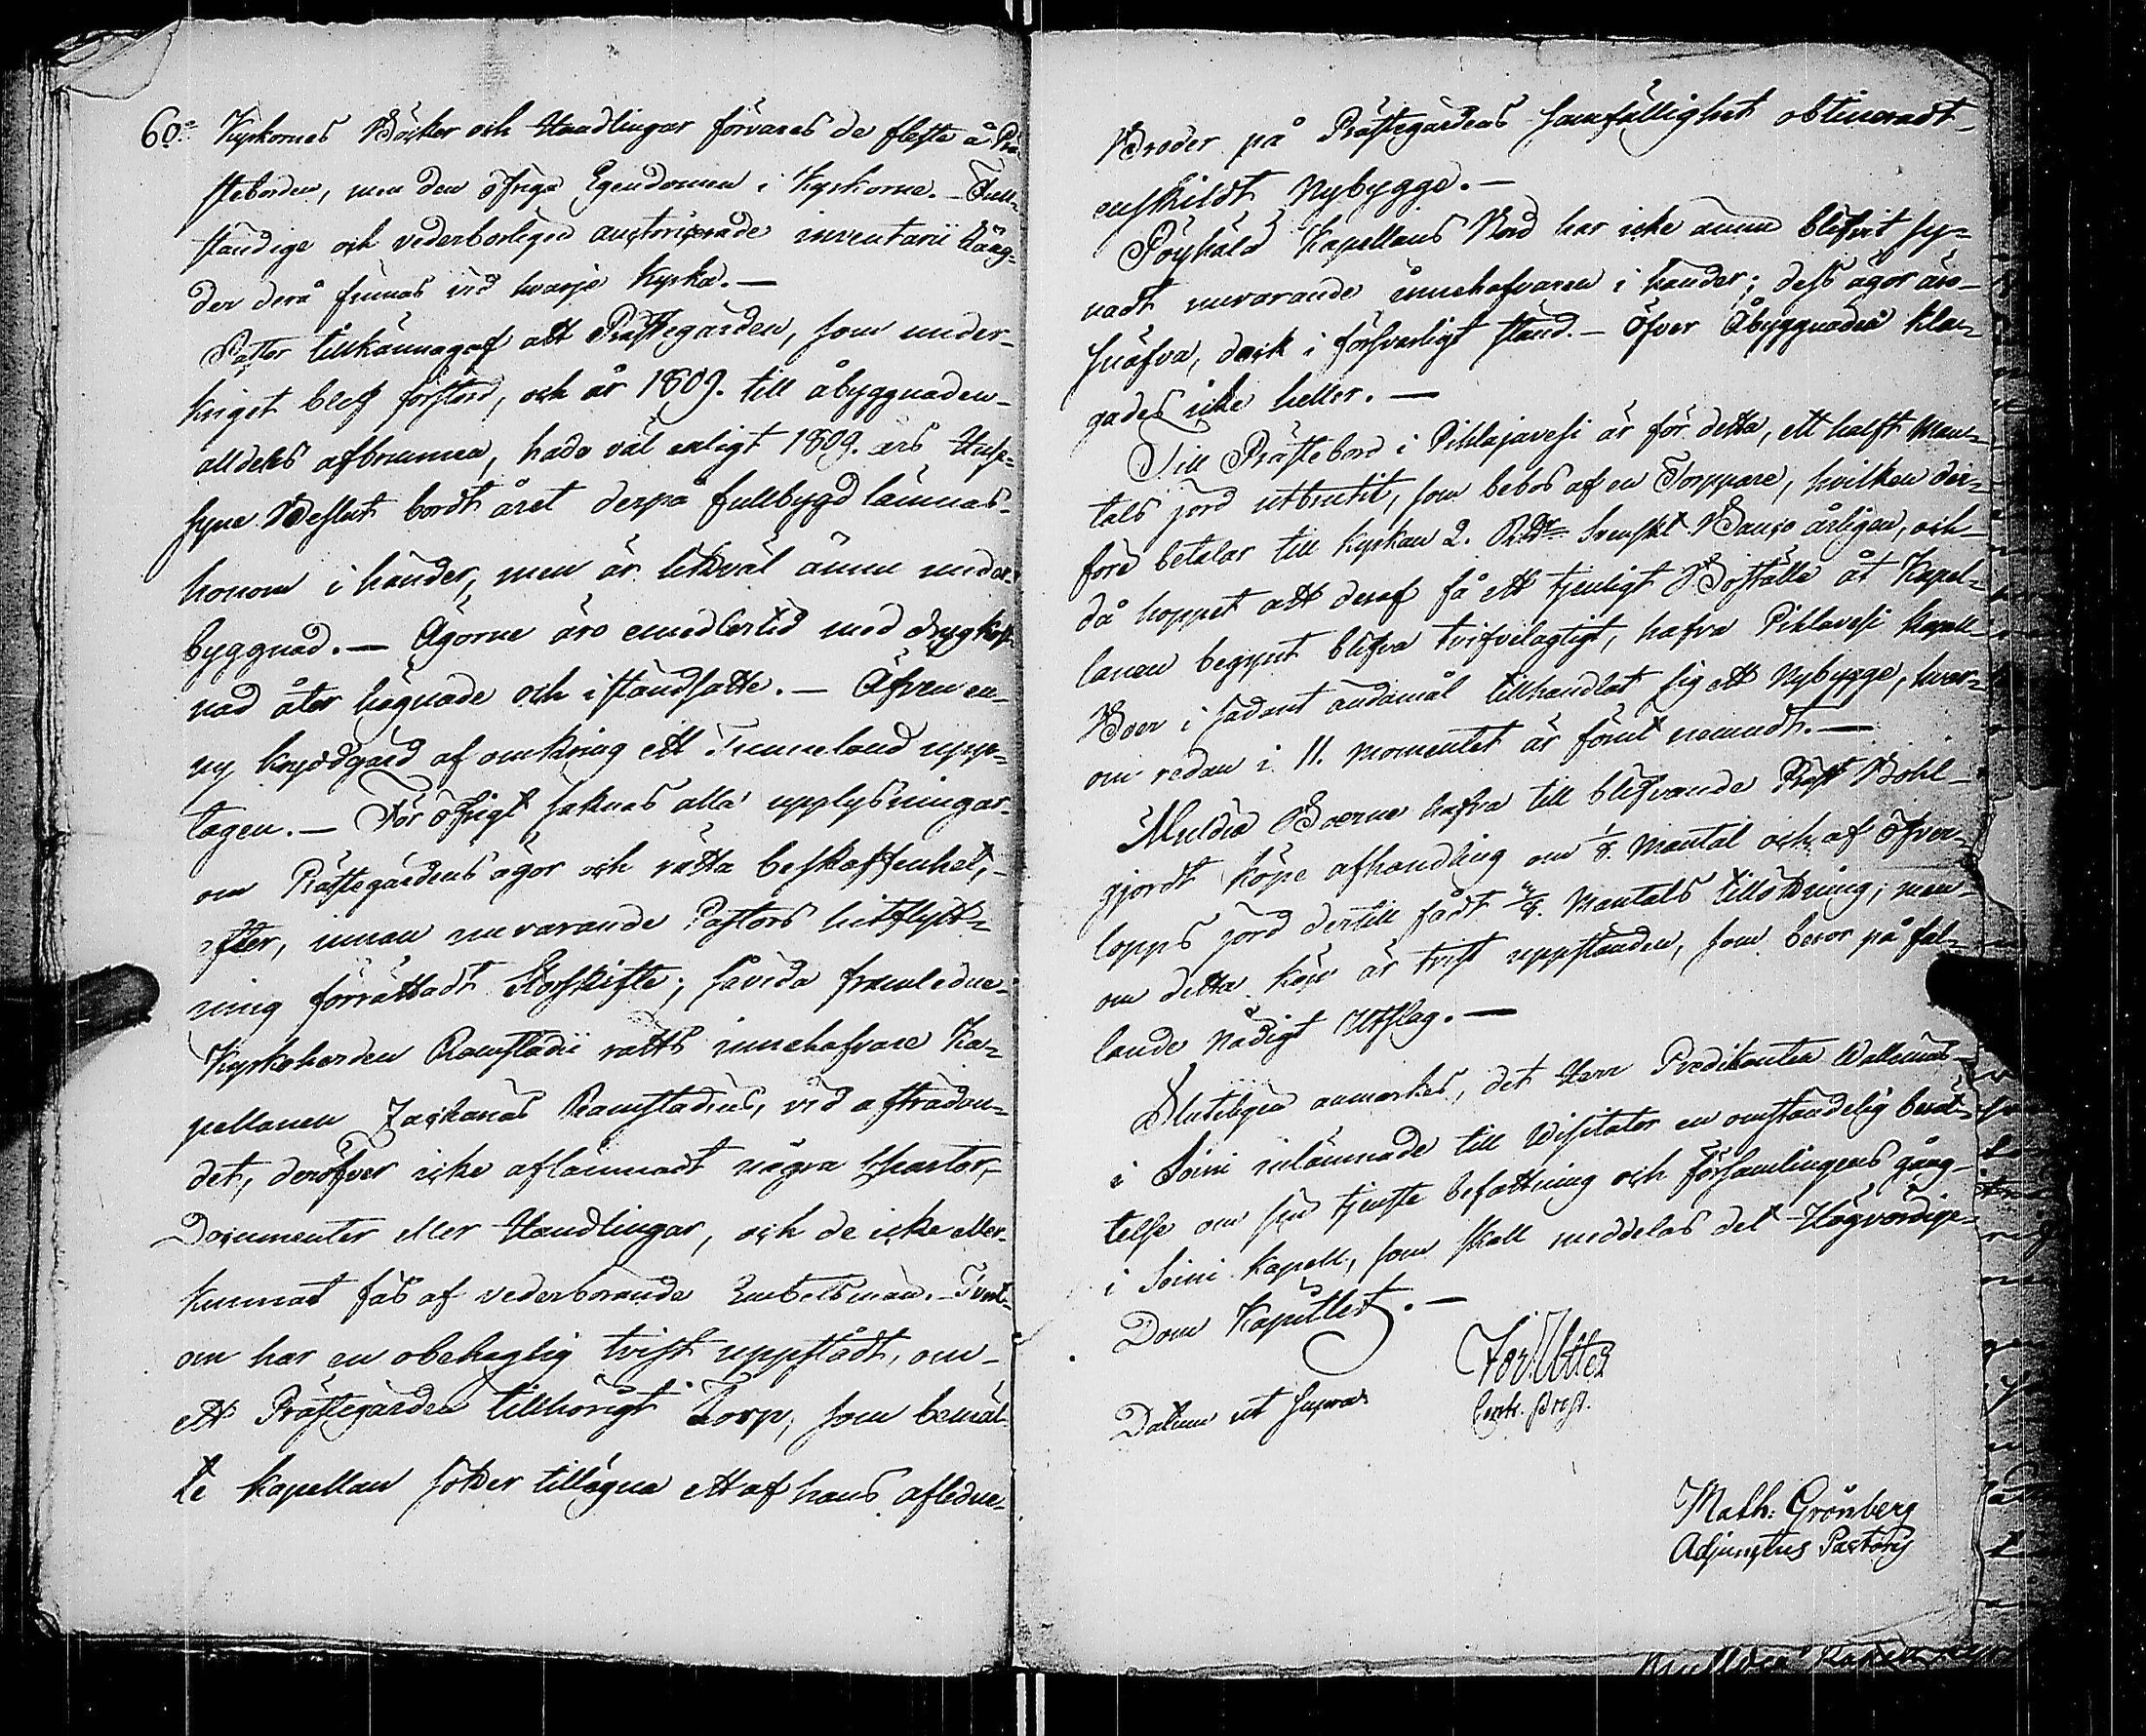 60:o Kyrkornes Böcker och Handlingar förvaras de flesta å Prä-
steborden, men den öfriga Egendomen i Kyrkorne. - Full-
ständige och vederbörligen auctoriserade inventarii Läng-
der derå finnas vid hvarje Kyrka. -
Pastor tillkännagaf att Prästegården, som under
kriget blef förstörd, och år 1809. till åbyggnaden
alldeles afbrunnen, hade väl enligt 1809. års Huse-
syne Beslut bordt året derpå fullbygd lämnas
honom i händer, men är likväl ännu under
byggnad. - Ägorne äro emedlertid med dryg kost-
nad åter hägnade och i ståndsatte. - Äfven en
ny kryddgård af omkring ett Tunneland upp-
tagen. - För öfrigt saknas alla upplysningar
om Prästegårdens ägor och rätta beskaffenhet,
efter, innan nuvarande Pastors hitflytt-
ning förrättadt Storskifte; såvida framledne
Kyrkoherden Ramstadii rätts innehafvare Ka-
pellanen Zachanas Ramstadius, vid afträdan-
det, deröfver icke aflämnadt några Chartor,
Documenter eller Handlingar, och de icke eller
kunnat fås af vederbörande Embetsmän. - Tvert-
om har en obehaglig tvist uppstådt, om
ett Prästegården tillhörigt Torp, som bemäl-
te Kapellan söker tillägna ett af hans afledne
Broder på Prästegårdens samfällighet obtineradt
enskildt Nybygge. -
Pöyhälä Kapellans Bord har icke ännu blifvit sy-
nadt nuvarande innehafvaren i händer; dess ägor äro
snäfva, dock i försvarligt stånd. - Öfver Åbyggnaden kla-
gades icke heller. -
Till Prästebord i Pihlajavesi är för detta, ett halft Man-
tals jord utbrutit, som bebos af en Torppare, hvilken der-
före betalar till Kyrkan 2. R:dr Svenskt Banco årligen, och
då hoppet att deraf få ett tjenligt Boställe åt Kapel-
lanen begynt blifva tvifvelagtigt, hafva Pihlavesi Kapell
Boer i sådant ändamål tillhandlat sig ett Nybygge, hvar-
om redan i 11. momentet är förut nämndt. -
Multia Boerne hafva till blifvande Präst Bohl
gjordt köpe afhandling om 1/8. Mantal och af öfver-
lopps jord dertill fådt /8. Mantals tillökning; men
om detta köp är tvist uppstånden, som beror på fal-
lande Nådigt Utslag. -
Sluteligen anmärkes, det Herr Predikanten Wallenius
i Soini inlämnade till Visitator en omständelig berät-
telse om sin tjenste befattning och församlingens gång
i Soini Kapell, som skall meddelas det Högvördige
Dom Kapitlet. -
Datum ut supra
Jos. Utter
Cont. Prost.
Math: Grönberg
Adjunctus Pastoris